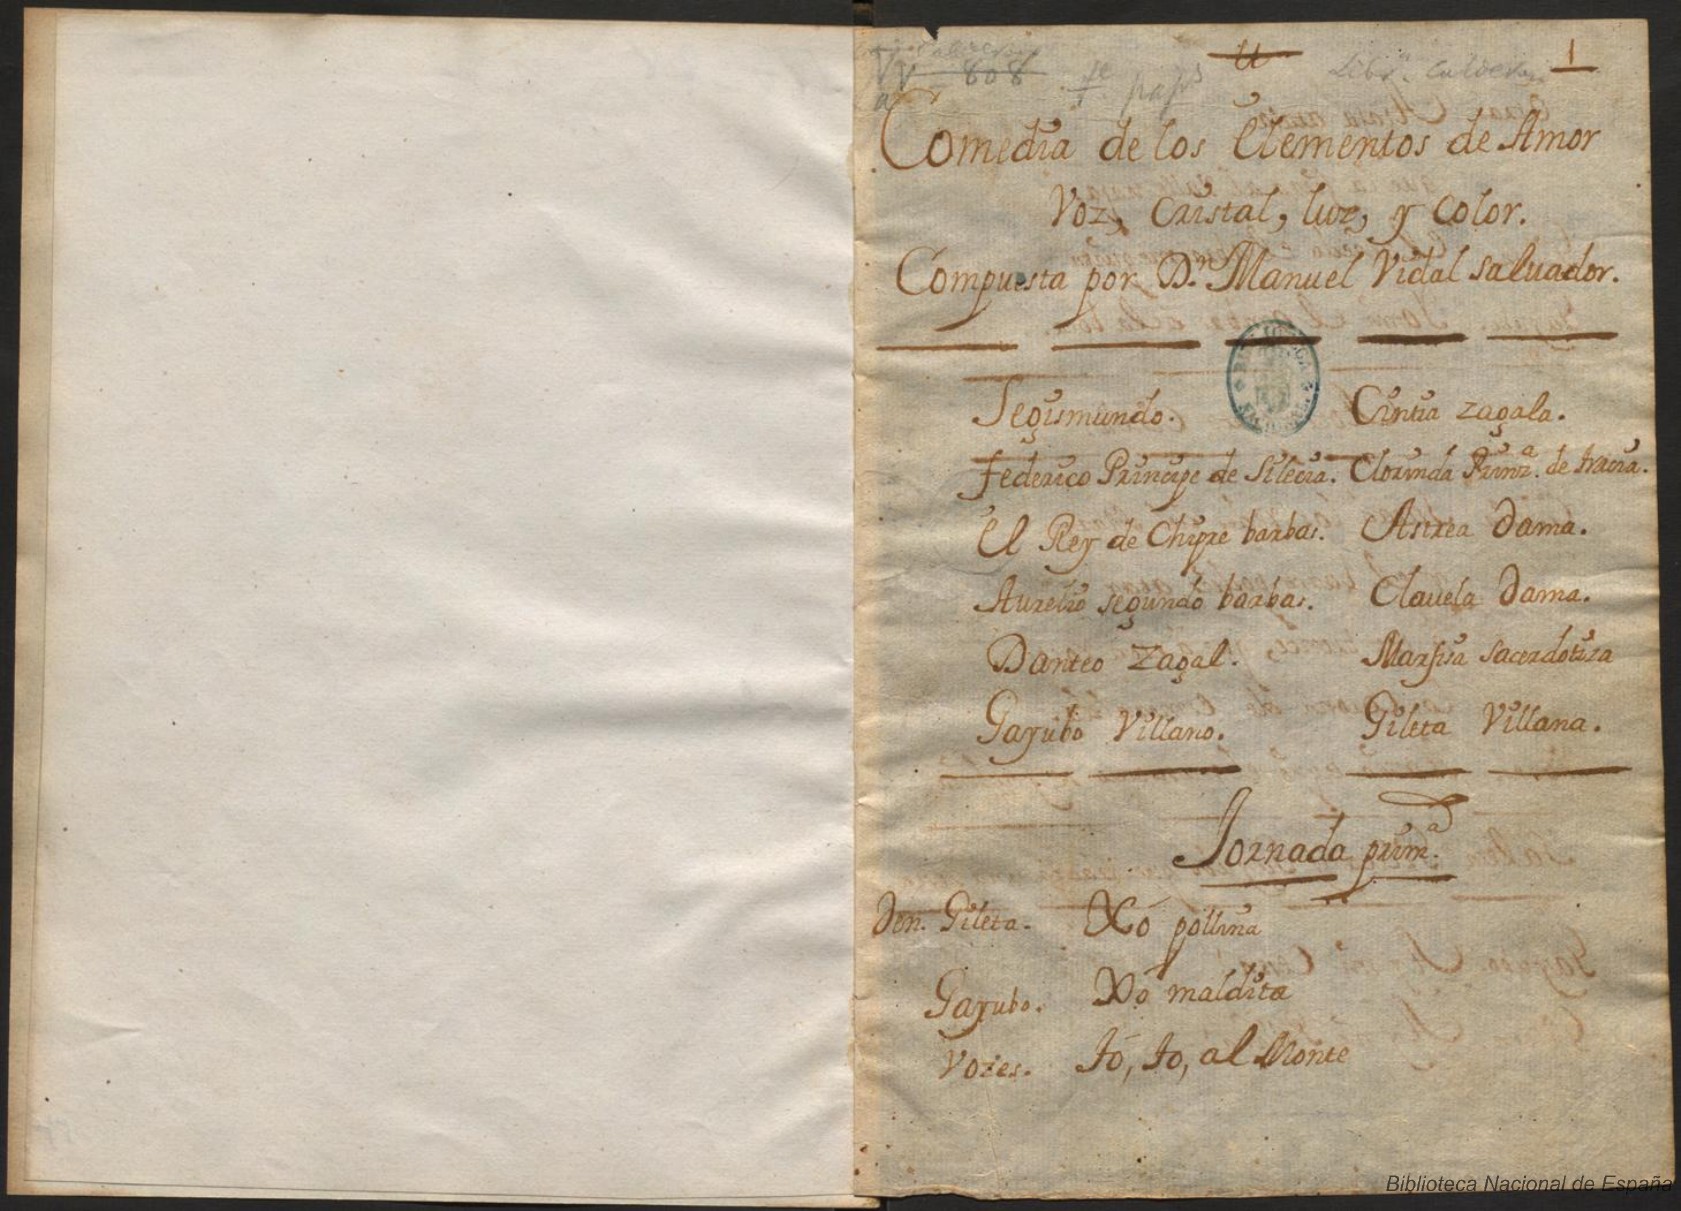 VV 808
1
Comedia de los Elementos de Amor
Voz, Cristal, luz, y Color.
Compuesta por Dn. Manuel Vidal Saluador.
Segismundo. Cintia zagala.
Federico Principe de Silecia. Clorinda Prinz.a de tracia.
El Rey de Chipre barbas. Astrea Dama.
Aurelio segundo barbas. Clauela Dama.
Danteo Zagal. Marfisa Sacerdotiza
Gayubo Villano. Gileta Villana.
Jornada prim.a
Den. Gileta. Xó pollina
Gayubo. Xó maldita
Vozes. Tó, to, al Monte
Biblioteca Nacional de España